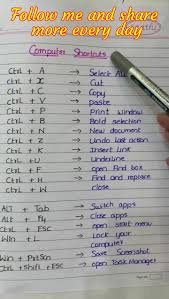 Follow me and share
more every day
Computer Shortcuts
Ctrl + A → Select All
Ctrl + X → Cut
Ctrl + C → Copy
Ctrl + V → paste
Ctrl + P → Print window
Ctrl + B → Bold selection
Ctrl + N → New document
Ctrl + Z → Undo last action
Ctrl + K → Insert link
Ctrl + U → Underline
Ctrl + F → open Find box
Ctrl + H → Find and replace
Ctrl + W → close
ALT + Tab → Switch apps
Alt + F4 → Close apps
Ctrl + ESC → open start menu
Win + L → Lock your
computer
Win + PrtScn → Save Screenshot
Ctrl + Shift + Esc → open Task Manager